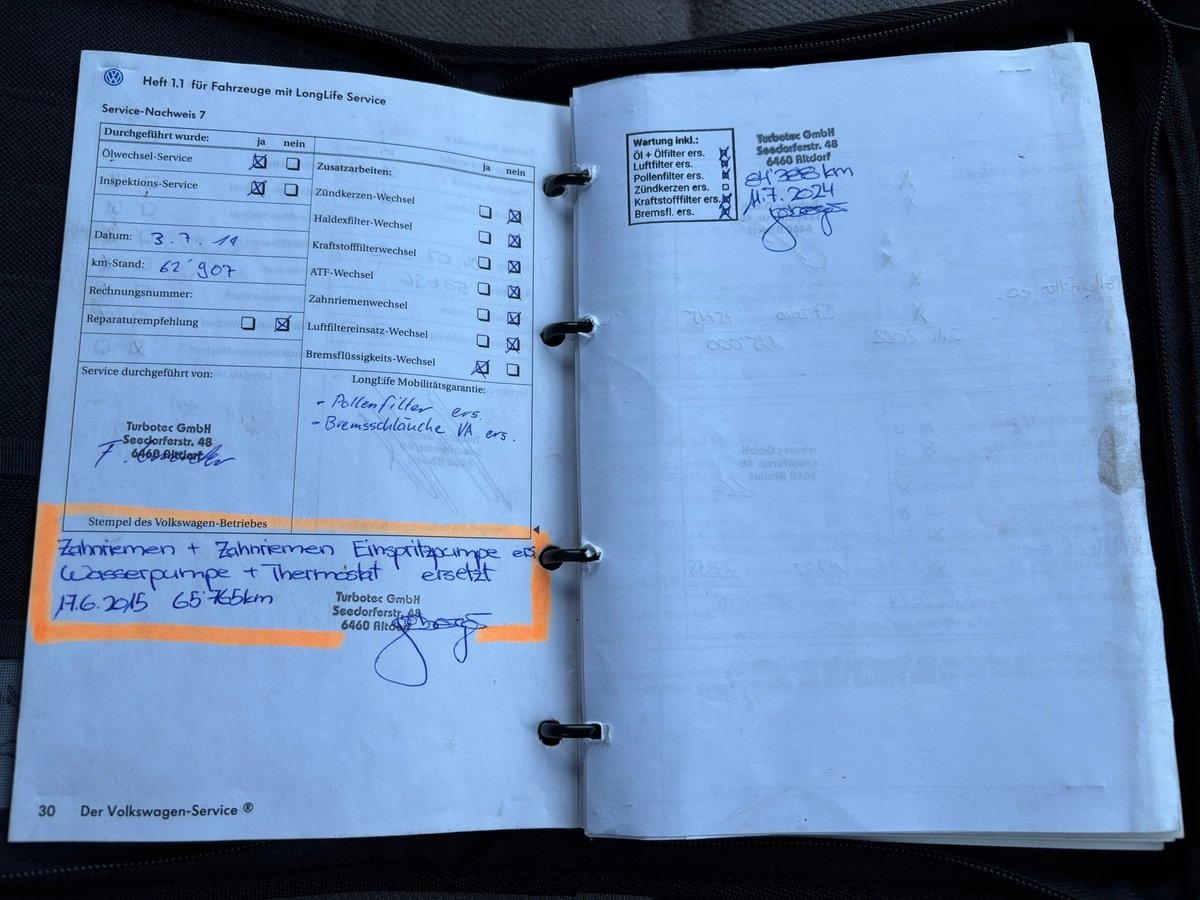 Heft 1.1 für Fahrzeuge mit LongLife Service
Service-Nachweis 7
Durchgeführt wurde: ja nein
Ölwechsel-Service
Inspektions-Service
Datum: 3.7.14
km-Stand: 62'907
Rechnungsnummer:
Reparaturempfehlung
Zusatzarbeiten: ja nein
Zündkerzen-Wechsel
Haldexfilter-Wechsel
Kraftstofffilterwechsel
ATF-Wechsel
Zahnriemenwechsel
Luftfiltereinsatz-Wechsel
Bremsflüssigkeits-Wechsel
Service durchgeführt von:
Turbotec GmbH
Seedorferstr. 48
6460 Altdorf
Stempel des Volkswagen-Betriebes
LongLife Mobilitätsgarantie:
- Pollenfilter ers.
- Bremsschläuche VA ers.
Zahnriemen + Zahnriemen Einspritzpumpe ers.
Wasserpumpe + Thermostat ersetzt
17.6.2015 65'765km
Turbotec GmbH
Seedorferstr. 48
6460 Altdorf
30 Der Volkswagen-Service ®
Wartung inkl.:
Öl + Ölfilter ers.
Luftfilter ers.
Pollenfilter ers.
Zündkerzen ers.
Kraftstofffilter ers.
Bremsfl. ers.
Turbotec GmbH
Seedorferstr. 48
6460 Altdorf
11.7.2024